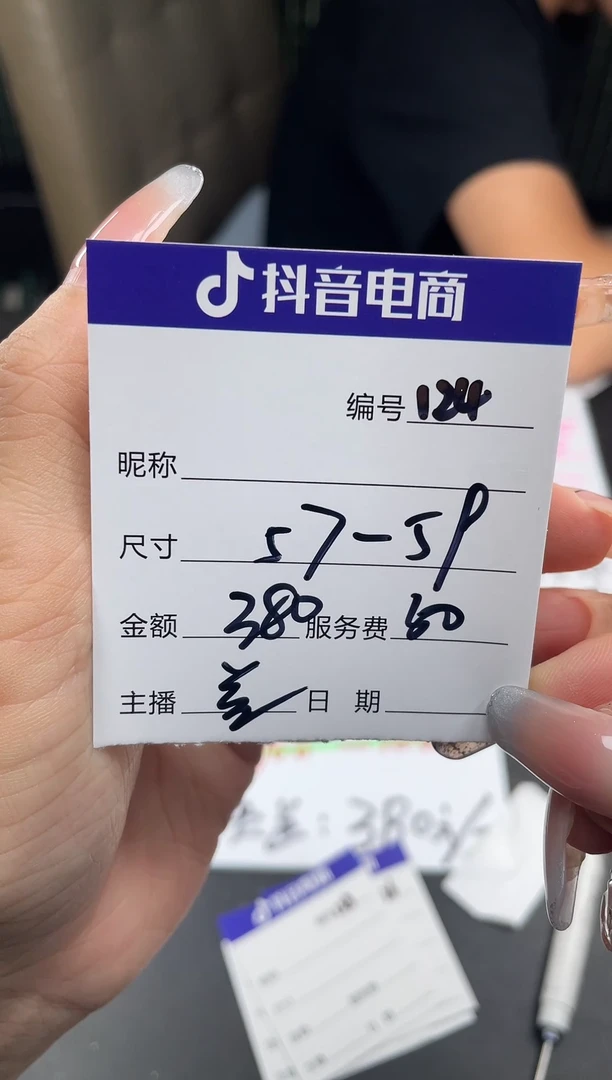 抖音电商
编号 124
昵称
尺寸 57-59
金额 380 服务费 50
主播 日 期